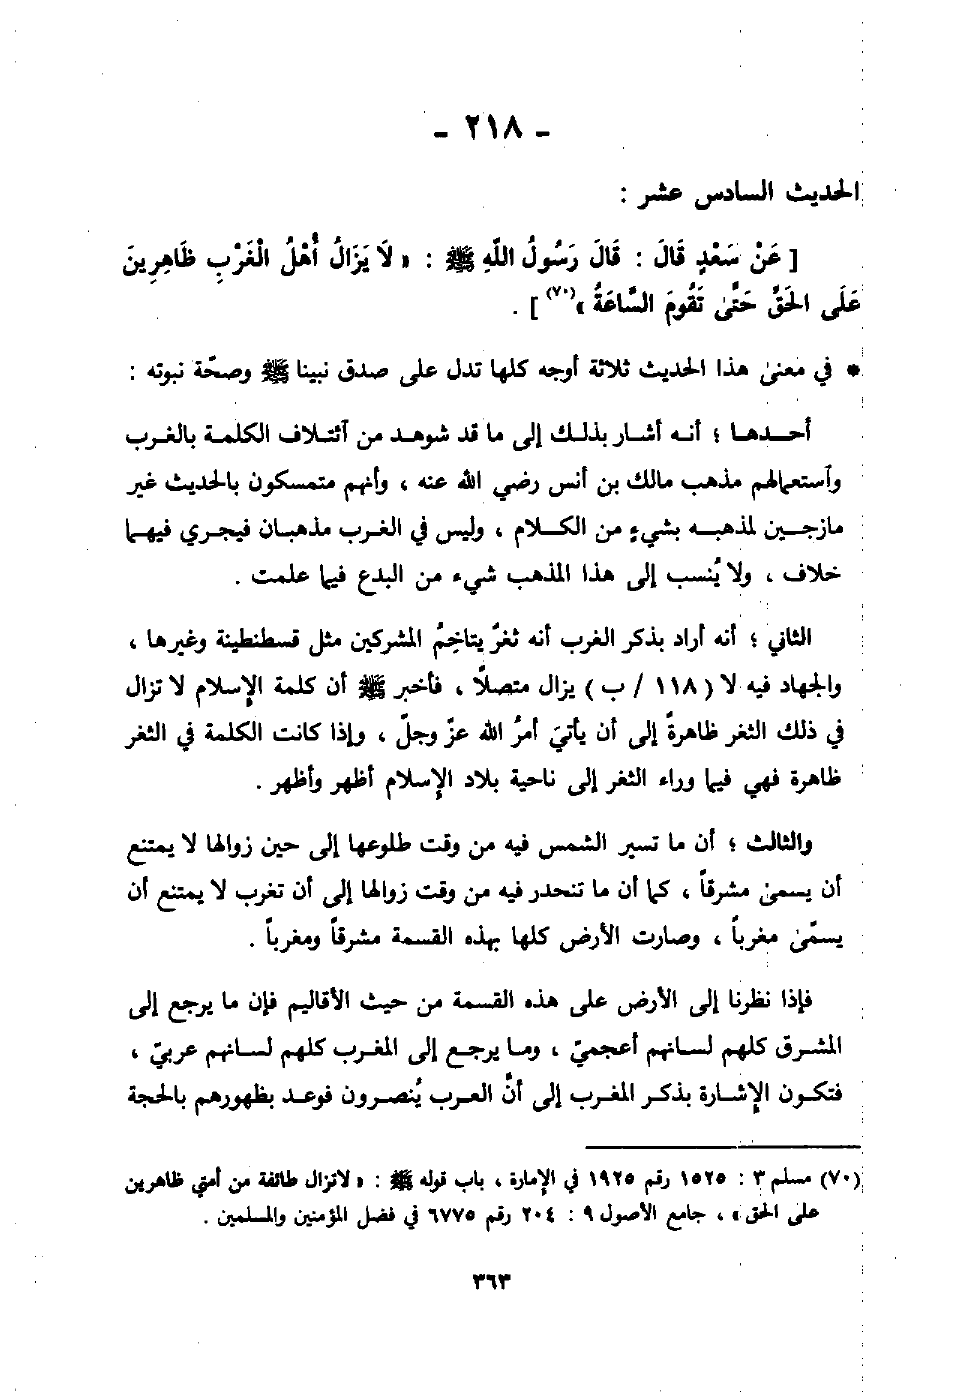 - ٢١٨ -
الحديث السادس عشر :
[ عَنْ سَعْدٍ قَالَ : قَالَ رَسُولُ اللَّهِ ﷺ : « لَا يَزَالُ أَهْلُ الْغَرْبِ ظَاهِرِينَ
عَلَى الحَقِّ حَتَّىٰ تَقُومَ السَّاعَةُ »(٧٠) ] .
* في معنىٰ هذا الحديث ثلاثة أوجه كلها تدل على صدق نبينا ﷺ وصحّة نبوته :
أحـدهـا ؛ أنـه أشـار بذلـك إلى ما قد شوهـد من آئتـلاف الكلمـة بالغـرب
وآستعمالهم مذهب مالك بن أنس رضي الله عنه ، وأنهم متمسكون بالحديث غير
مازجـين لمذهبـه بشيءٍ من الكـلام ، وليس في الغـرب مذهبـان فيجـري فيهـما
خلاف ، ولا يُنسب إلى هذا المذهب شيء من البدع فيما علمت .
الثاني ؛ أنه أراد بذكر الغرب أنه ثغرٌ يتاخِمُ المشركين مثل قسطنطينة وغيرها ،
والجهاد فيه لا ( ١١٨ / ب ) يزال متصلًا ، فأخبر ﷺ أن كلمة الإسلام لا تزال
في ذلك الثغر ظاهرةً إلى أن يأتيَ أمرُ الله عزّ وجلّ ، وإذا كانت الكلمة في الثغر
ظاهرة فهي فيما وراء الثغر إلى ناحية بلاد الإسلام أظهر وأظهر .
والثالث ؛ أن ما تسير الشمس فيه من وقت طلوعها إلى حين زوالها لا يمتنع
أن يسمىٰ مشرقاً ، كما أن ما تنحدر فيه من وقت زوالها إلى أن تغرب لا يمتنع أن
يسمّىٰ مغرباً ، وصارت الأرض كلها بهذه القسمة مشرقاً ومغرباً .
فإذا نظرنا إلى الأرض على هذه القسمة من حيث الأقاليم فإن ما يرجع إلى
المشـرق كلهم لسـانهم أعجميّ ، ومـا يرجـع إلى المغـرب كلهم لسـانهم عربيّ ،
فتكـون الإشـارة بذكـر المغـرب إلى أنَّ العـرب يُنصـرون فوعـد بظهورهم بالحجة
(٧٠) مسلم ٣ : ١٥٢٥ رقم ١٩٢٥ في الإمارة ، باب قوله ﷺ : « لاتزال طائفة من أمتي ظاهرين
على الحق » ، جامع الأصول ٩ : ٢٠٤ رقم ٦٧٧٥ في فضل المؤمنين والمسلمين .
٣٦٣